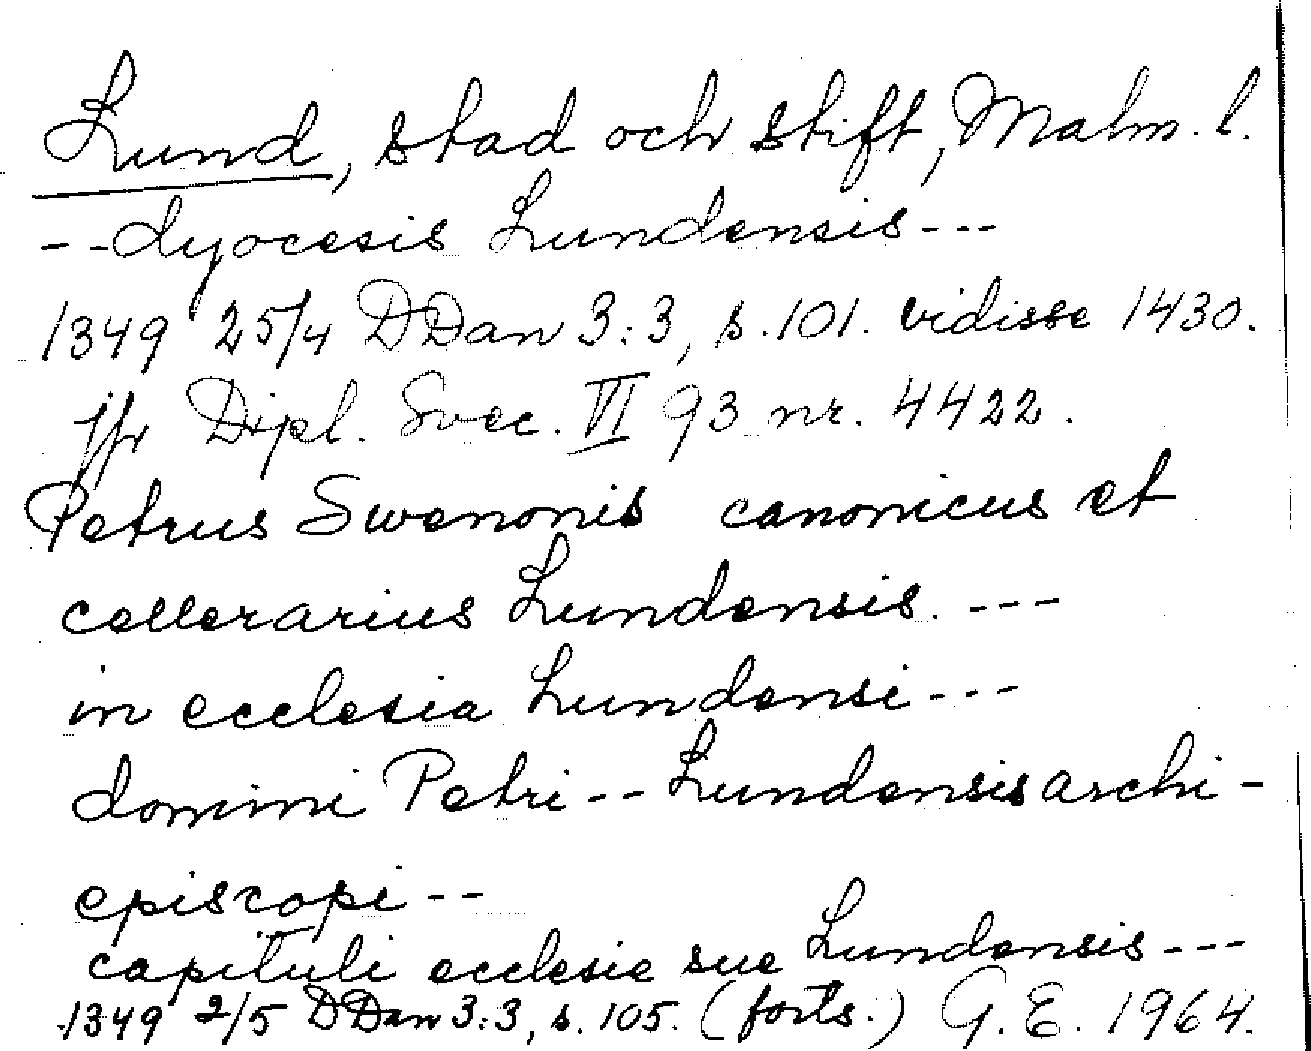 Lund, stad och stift, Malm. l.
-- dyocesis Lundensis ---
1349 25/4 DDan 3:3, s. 101. vidisse 1430.
jfr Dipl. Svec. VI 93 nr. 4422.
Petrus Swenonis canonicus et
cellerarius Lundensis. ---
in ecclesia Lundensi ---
domini Petri -- Lundensis archi-
episcopi --
capituli ecclesie sue Lundensis ---
1349 2/5 DDan 3:3, s. 105. (forts.) G.E. 1964.